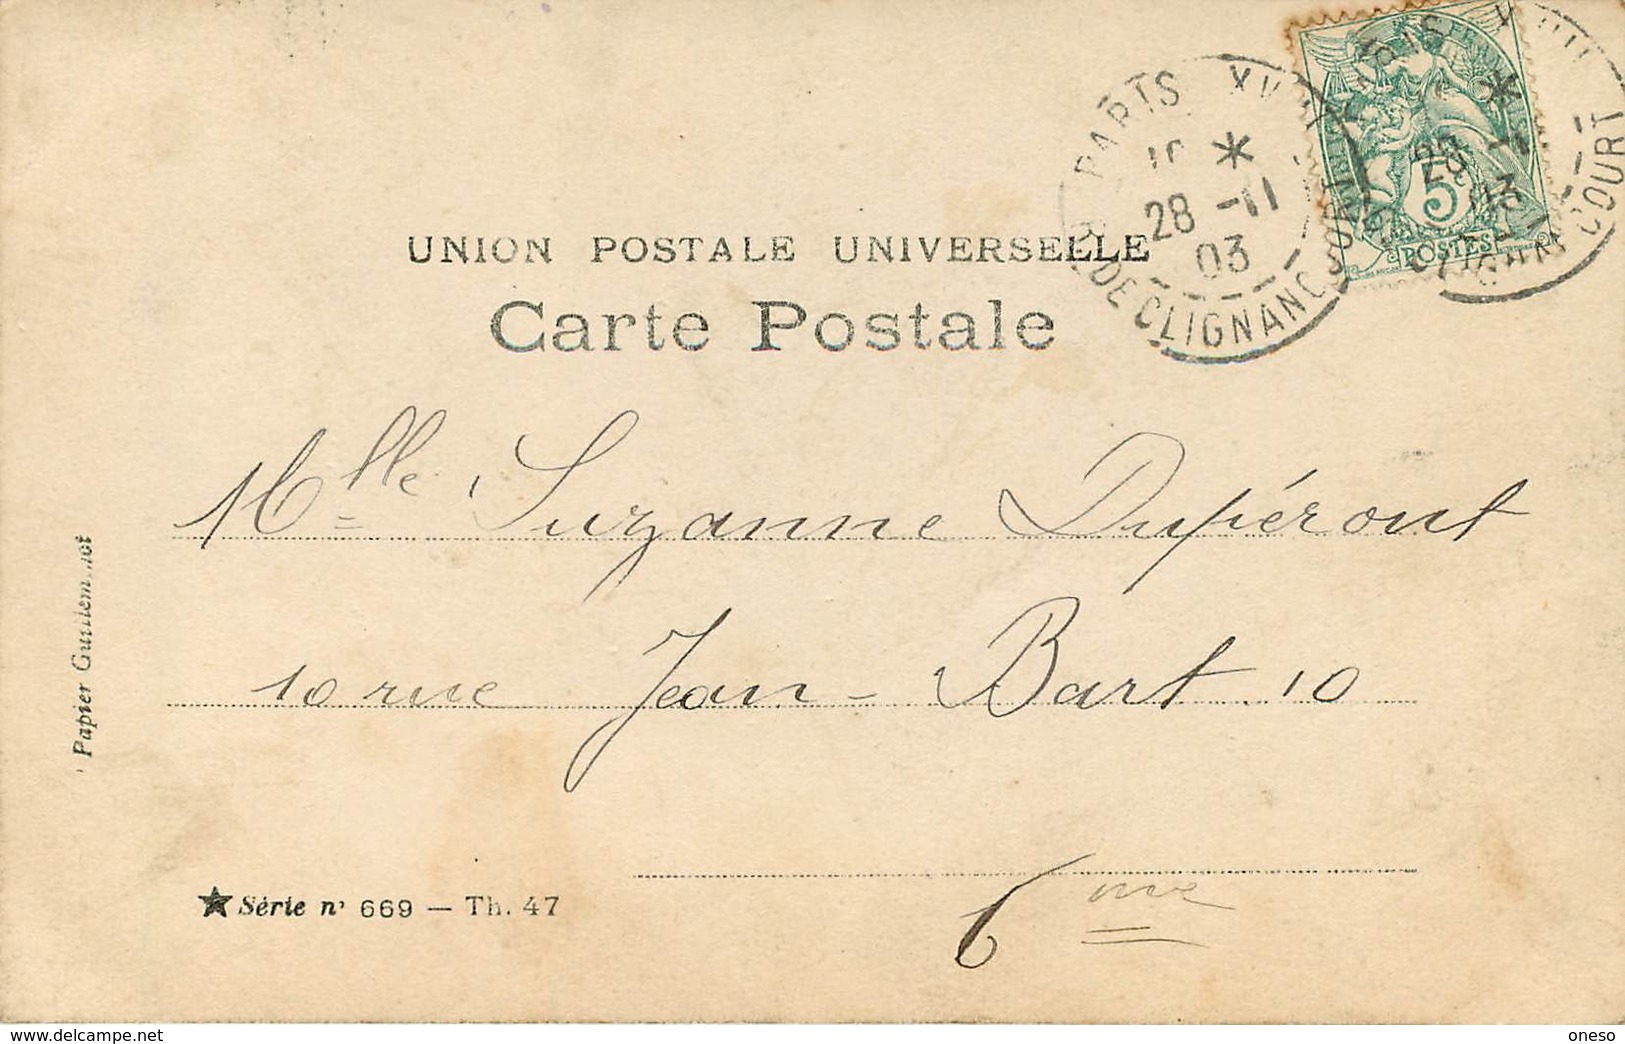 PARIS XVIII
10 *
28 -11
03
R. DE CLIGNANCOURT
5c
POSTES
UNION POSTALE UNIVERSELLE
Carte Postale
Mlle Suzanne Dupéront
10 rue Jean-Bart 10
6me
Papier Guilleminot
★ Série n° 669 — Th. 47
www.delcampe.net
oneso